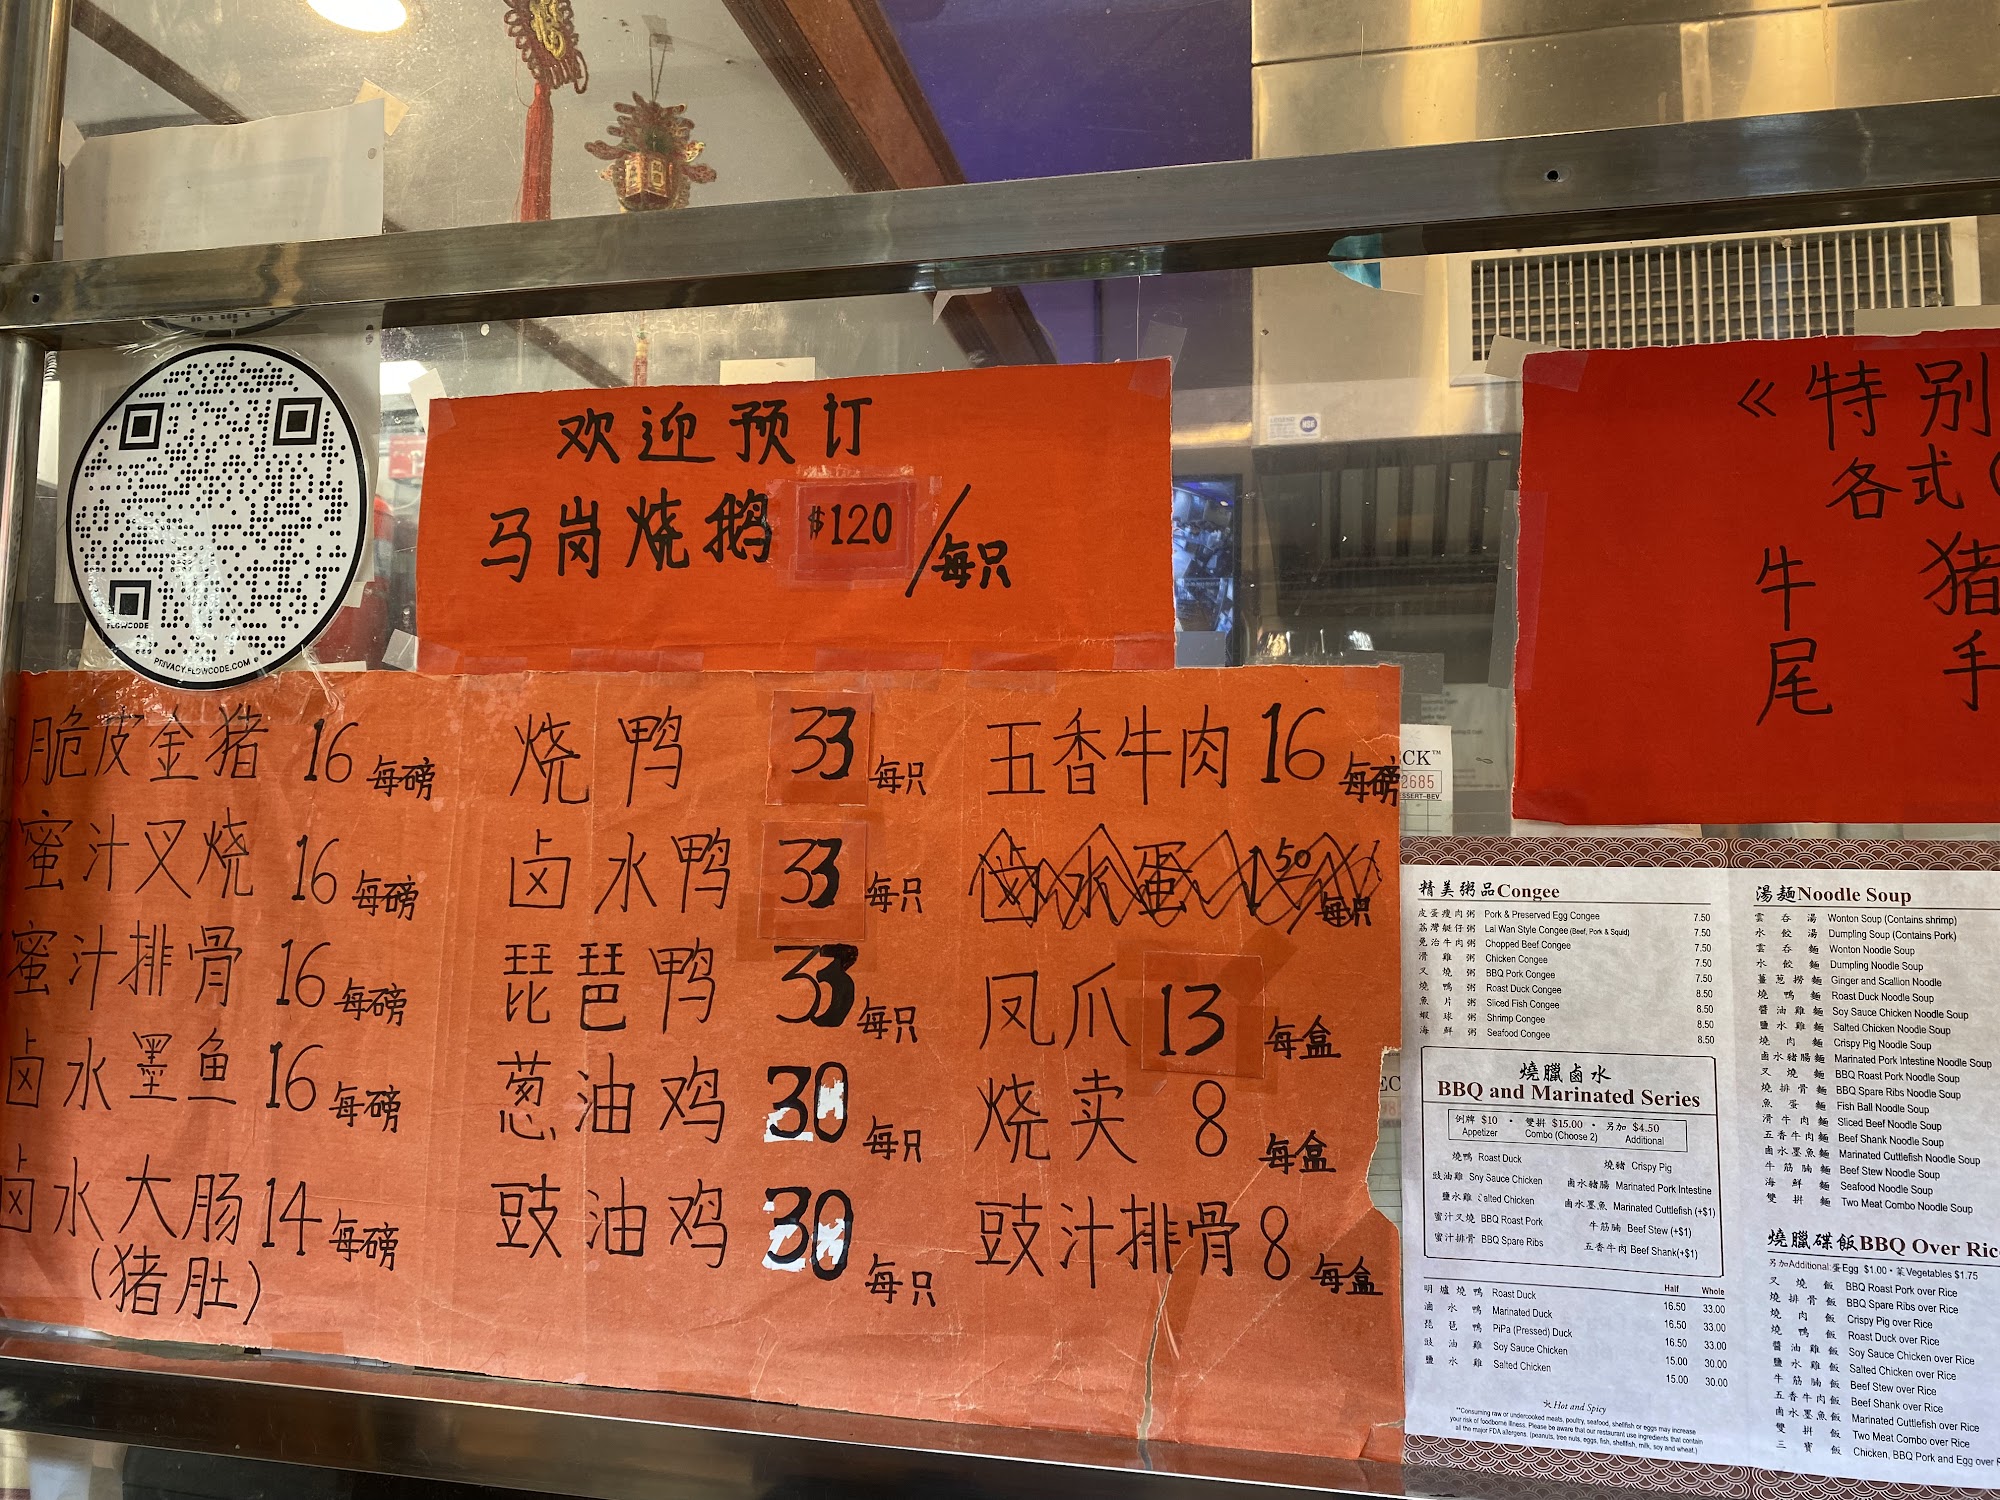 FLOWCODE
PRIVACY.FLOWCODE.COM
欢迎预订
马岗烧鹅 $120/每只
脆皮金猪 16 每磅
蜜汁叉烧 16 每磅
蜜汁排骨 16 每磅
卤水墨鱼 16 每磅
卤水大肠 14 每磅
(猪肚)
烧鸭 33 每只
卤水鸭 33 每只
琵琶鸭 33 每只
葱油鸡 30 每只
豉油鸡 30 每只
五香牛肉 16 每磅
卤水蛋 1.50 每只
凤爪 13 每盒
烧卖 8 每盒
豉汁排骨 8 每盒
《特别
各式(
牛尾
猪手
CK™
2685
SSERT-BEV
精美粥品Congee
皮蛋瘦肉粥 Pork & Preserved Egg Congee 7.50
荔灣艇仔粥 Lai Wan Style Congee (Beef, Pork & Squid) 7.50
免治牛肉粥 Chopped Beef Congee 7.50
滑雞粥 Chicken Congee 7.50
叉燒粥 BBQ Pork Congee 7.50
燒鴨粥 Roast Duck Congee 8.50
魚片粥 Sliced Fish Congee 8.50
蝦球粥 Shrimp Congee 8.50
海鮮粥 Seafood Congee 8.50
燒臘鹵水
BBQ and Marinated Series
例牌 $10 • 雙拼 $15.00 • 另加 $4.50
Appetizer Combo (Choose 2) Additional
燒鴨 Roast Duck
豉油雞 Soy Sauce Chicken
鹽水雞 Salted Chicken
蜜汁叉燒 BBQ Roast Pork
蜜汁排骨 BBQ Spare Ribs
燒豬 Crispy Pig
鹵水豬腸 Marinated Pork Intestine
鹵水墨魚 Marinated Cuttlefish (+$1)
牛筋腩 Beef Stew (+$1)
五香牛肉 Beef Shank(+$1)
Half Whole
明爐燒鴨 Roast Duck 16.50 33.00
滷水鴨 Marinated Duck 16.50 33.00
琵琶鴨 PiPa (Pressed) Duck 16.50 33.00
豉油雞 Soy Sauce Chicken 15.00 30.00
鹽水雞 Salted Chicken 15.00 30.00
Hot and Spicy
**Consuming raw or undercooked meats, poultry, seafood, shellfish or eggs may increase
your risk of foodborne illness. Please be aware that our restaurant use ingredients that contain
all the major FDA allergens. (peanuts, tree nuts, eggs, fish, shellfish, milk, soy and wheat.)
湯麵Noodle Soup
雲吞湯 Wonton Soup (Contains shrimp)
水餃湯 Dumpling Soup (Contains Pork)
雲吞麵 Wonton Noodle Soup
水餃麵 Dumpling Noodle Soup
薑蔥撈麵 Ginger and Scallion Noodle
燒鴨麵 Roast Duck Noodle Soup
醬油雞麵 Soy Sauce Chicken Noodle Soup
鹽水雞麵 Salted Chicken Noodle Soup
燒肉麵 Crispy Pig Noodle Soup
鹵水豬腸麵 Marinated Pork Intestine Noodle Soup
叉燒麵 BBQ Roast Pork Noodle Soup
燒排骨麵 BBQ Spare Ribs Noodle Soup
魚蛋麵 Fish Ball Noodle Soup
滑牛肉麵 Sliced Beef Noodle Soup
五香牛肉麵 Beef Shank Noodle Soup
鹵水墨魚麵 Marinated Cuttlefish Noodle Soup
牛筋腩麵 Beef Stew Noodle Soup
海鮮麵 Seafood Noodle Soup
雙拼麵 Two Meat Combo Noodle Soup
燒臘碟飯BBQ Over Rice
另加Additional:蛋Egg $1.00 • 菜Vegetables $1.75
叉燒飯 BBQ Roast Pork over Rice
燒排骨飯 BBQ Spare Ribs over Rice
燒肉飯 Crispy Pig over Rice
燒鴨飯 Roast Duck over Rice
醬油雞飯 Soy Sauce Chicken over Rice
鹽水雞飯 Salted Chicken over Rice
牛筋腩飯 Beef Stew over Rice
五香牛肉飯 Beef Shank over Rice
鹵水墨魚飯 Marinated Cuttlefish over Rice
雙拼飯 Two Meat Combo over Rice
三寶飯 Chicken, BBQ Pork and Egg over